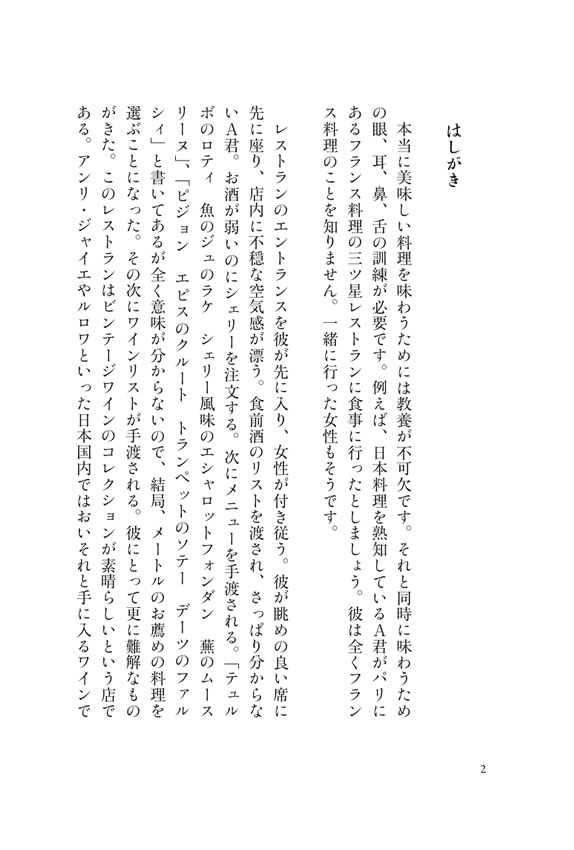 はしがき
本当に美味しい料理を味わうためには教養が不可欠です。それと同時に味わうため
の眼、耳、鼻、舌の訓練が必要です。例えば、日本料理を熟知しているA君がパリに
あるフランス料理の三ツ星レストランに食事に行ったとしましょう。彼は全くフラン
ス料理のことを知りません。一緒に行った女性もそうです。
レストランのエントランスを彼が先に入り、女性が付き従う。彼が眺めの良い席に
先に座り、店内に不穏な空気感が漂う。食前酒のリストを渡され、さっぱり分からな
いA君。お酒が弱いのにシェリーを注文する。次にメニューを手渡される。「テュル
ボのロティ　魚のジュのラケ　シェリー風味のエシャロットフォンダン　蕪のムース
リーヌ」、「ピジョン　エピスのクルート　トランペットのソテー　デーツのファル
シィ」と書いてあるが全く意味が分からないので、結局、メートルのお薦めの料理を
選ぶことになった。その次にワインリストが手渡される。彼にとって更に難解なもの
がきた。このレストランはビンテージワインのコレクションが素晴らしいという店で
ある。アンリ・ジャイエやルロワといった日本国内ではおいそれと手に入るワインで
2